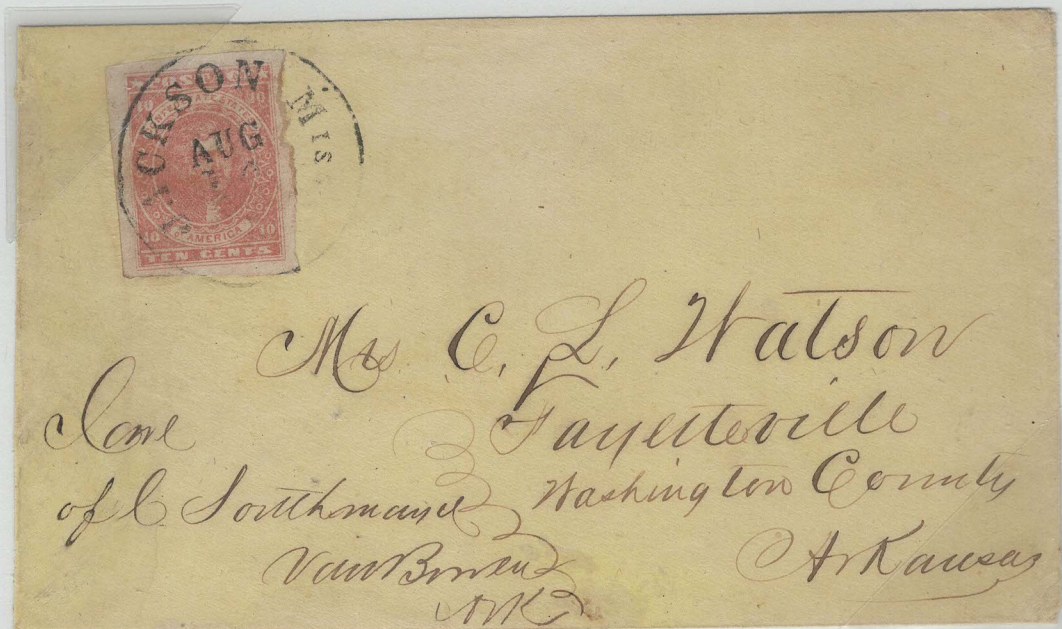 JACKSON MIS
AUG
POSTAGE
10 10
OF AMERICA
10 10
TEN CENTS
Mrs C. L. Watson
Fayetteville
Washington County
Arkansas
Care
of C Southmayd
Van Buren
Ark